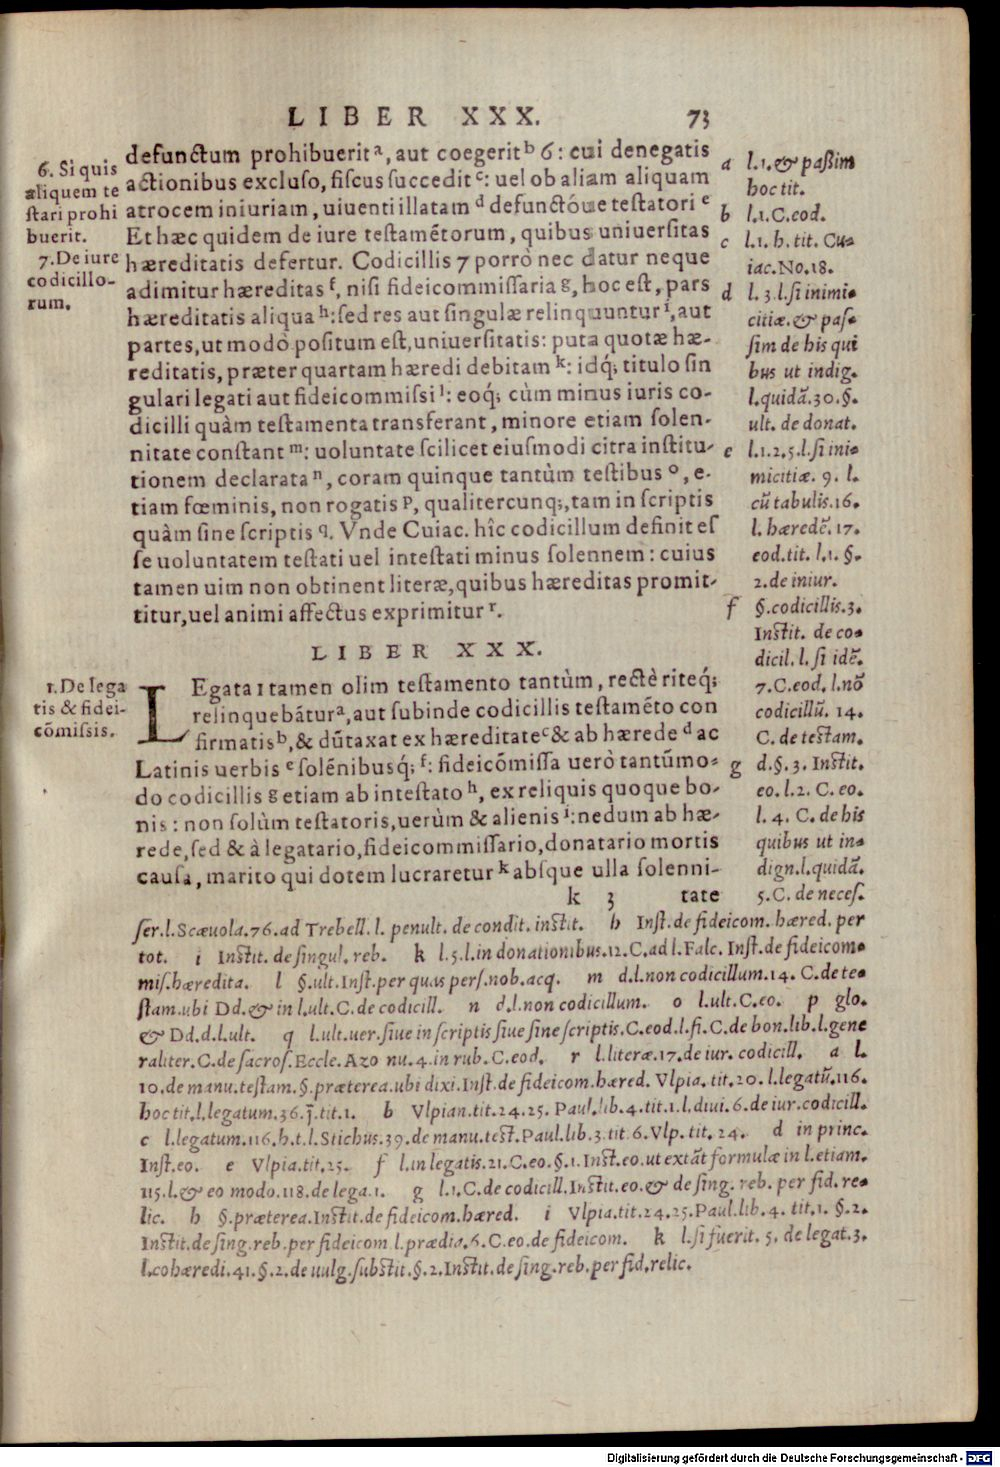 LIBER XXX. 73
6. Si quis
aliquem te
stari prohi
buerit.
7. De iure
codicillo-
rum.
defunctum prohibuerit a, aut coegerit b 6: cui denegatis
actionibus excluso, fiscus succedit c: uel ob aliam aliquam
atrocem iniuriam, uiuenti illatam d defunctóue testatori e
Et hæc quidem de iure testamẽtorum, quibus uniuersitas
hæreditatis defertur. Codicillis 7 porrò nec datur neque
adimitur hæreditas f, nisi fideicommissaria g, hoc est, pars
hæreditatis aliqua h: sed res aut singulæ relinquuntur i, aut
partes, ut modò positum est, uniuersitatis: puta quotæ hæ-
reditatis, præter quartam hæredi debitam k: idq; titulo sin
gulari legati aut fideicommissi l: eoq; cùm minus iuris co-
dicilli quàm testamenta transferant, minore etiam solen-
nitate constant m: uoluntate scilicet eiusmodi citra institu-
tionem declarata n, coram quinque tantùm testibus o, e-
tiam fœminis, non rogatis p, qualitercunq;, tam in scriptis
quàm sine scriptis q. Vnde Cuiac. hîc codicillum definit es
se uoluntatem testati uel intestati minus solennem: cuius
tamen uim non obtinent literæ, quibus hæreditas promit-
titur, uel animi affectus exprimitur r.
LIBER XXX.
1. De lega
tis & fidei-
cõmissis.
LEgata 1 tamen olim testamento tantùm, rectè riteq;
relinquebãtur a, aut subinde codicillis testamẽto con
firmatis b, & dũtaxat ex hæreditate c & ab hærede d ac
Latinis uerbis e solẽnibusq; f: fideicõmissa uerò tantũmo-
do codicillis g etiam ab intestato h, ex reliquis quoque bo-
nis: non solùm testatoris, uerùm & alienis i: nedum ab hæ-
rede, sed & à legatario, fideicommissario, donatario mortis
causa, marito qui dotem lucraretur k absque ulla solenni-
k 3 tate
a l.1. & paßim
hoc tit.
b l.1.C.eod.
c l.1. h. tit. Cu-
iac. No.18.
d l. 3. l. si inimi-
citiæ. & pas-
sim de his qui
bus ut indig.
l.quidã.30.§.
ult. de donat.
e l.1.2.5.l.si ini-
micitiæ. 9. l.
cũ tabulis.16.
l. hæredẽ. 17.
eod.tit. l.1. §.
2.de iniur.
f §.codicillis.3.
Instit. de co-
dicil. l. si idẽ.
7.C.eod.l.nõ
codicillũ. 14.
C. de testam.
g d.§.3. Instit.
eo.l.2. C. eo.
l. 4. C. de his
quibus ut in-
dign.l.quidã.
5.C. de neces.
ser.l.Scæuola.76.ad Trebell. l. penult. de condit. instit. h Inst.de fideicom. hæred. per
tot. i Instit. de singul. reb. k l.5.l.in donationibus.12.C.ad l.Falc. Inst.de fideicom-
mis.hæredita. l §.ult.Inst.per quas pers.nob.acq. m d.l.non codicillum.14. C.de te-
stam.ubi Dd.& in l.ult.C.de codicill. n d.l.non codicillum. o l.ult.C.eo. p glo.
& Dd.d.l.ult. q l.ult.uer.siue in scriptis siue sine scriptis.C.eod.l.fi.C.de bon.lib.l.gene
raliter.C.de sacros.Eccle.Azo nu.4.in rub.C.eod. r l.literæ.17.de iur. codicill. a l.
10.de manu.testam.§.præterea.ubi dixi.Inst.de fideicom.hæred. Vlpia. tit.20.l.legatũ.116.
hoc tit.l.legatum.36.j.tit.1. b Vlpian.tit.24.25. Paul.lib.4.tit.1.l.diui.6.de iur.codicill.
c l.legatum.116.h.t.l.Stichus.39.de manu.test.Paul.lib.3.tit.6.Vlp.tit.24. d in princ.
Inst.eo. e Vlpia.tit.25. f l.in legatis.21.C.eo.§.1.Inst.eo.ut extãt formulæ in l.etiam.
115.l.& eo modo.118.de lega.1. g l.1.C.de codicill.Instit.eo.& de sing. reb. per fid. re-
lic. h §.præterea.Instit.de fideicom.hæred. i Vlpia.tit.24.25.Paul.lib.4. tit.1. §.2.
Instit.de sing.reb.per fideicom.l.prædia.6.C.eo.de fideicom. k l.si fuerit. 5. de legat.3.
l.cohæredi.41.§.2.de uulg.substit.§.2.Instit.de sing.reb.per fid.relic.
Digitalisierung gefördert durch die Deutsche Forschungsgemeinschaft - DFG